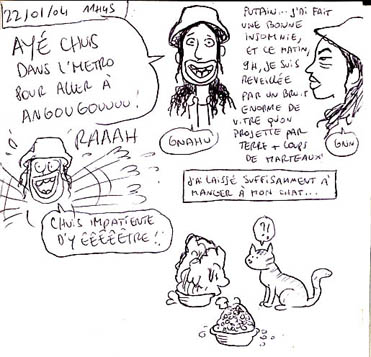 22/01/04 11H45
AYÉ CHUIS
DANS L'METRO
POUR ALLER À
ANGOUGOUUUU!
GNAHU
PUTAIN... J'AI FAIT
UNE BONNE
INSOMNIE,
ET CE MATIN,
9H, JE SUIS
REVEILLÉE
PAR UN BRUIT
ENORME DE
VITRE QU'ON
PROJETTE PAR
TERRE + COUPS
DE MARTEAUX!
GNIN
RAAAH
CHUIS IMPATIENTE
D'Y ÊÊÊÊÊTRE!!
J'AI LAISSÉ SUFFISAMMENT À
MANGER À MON CHAT...
?!